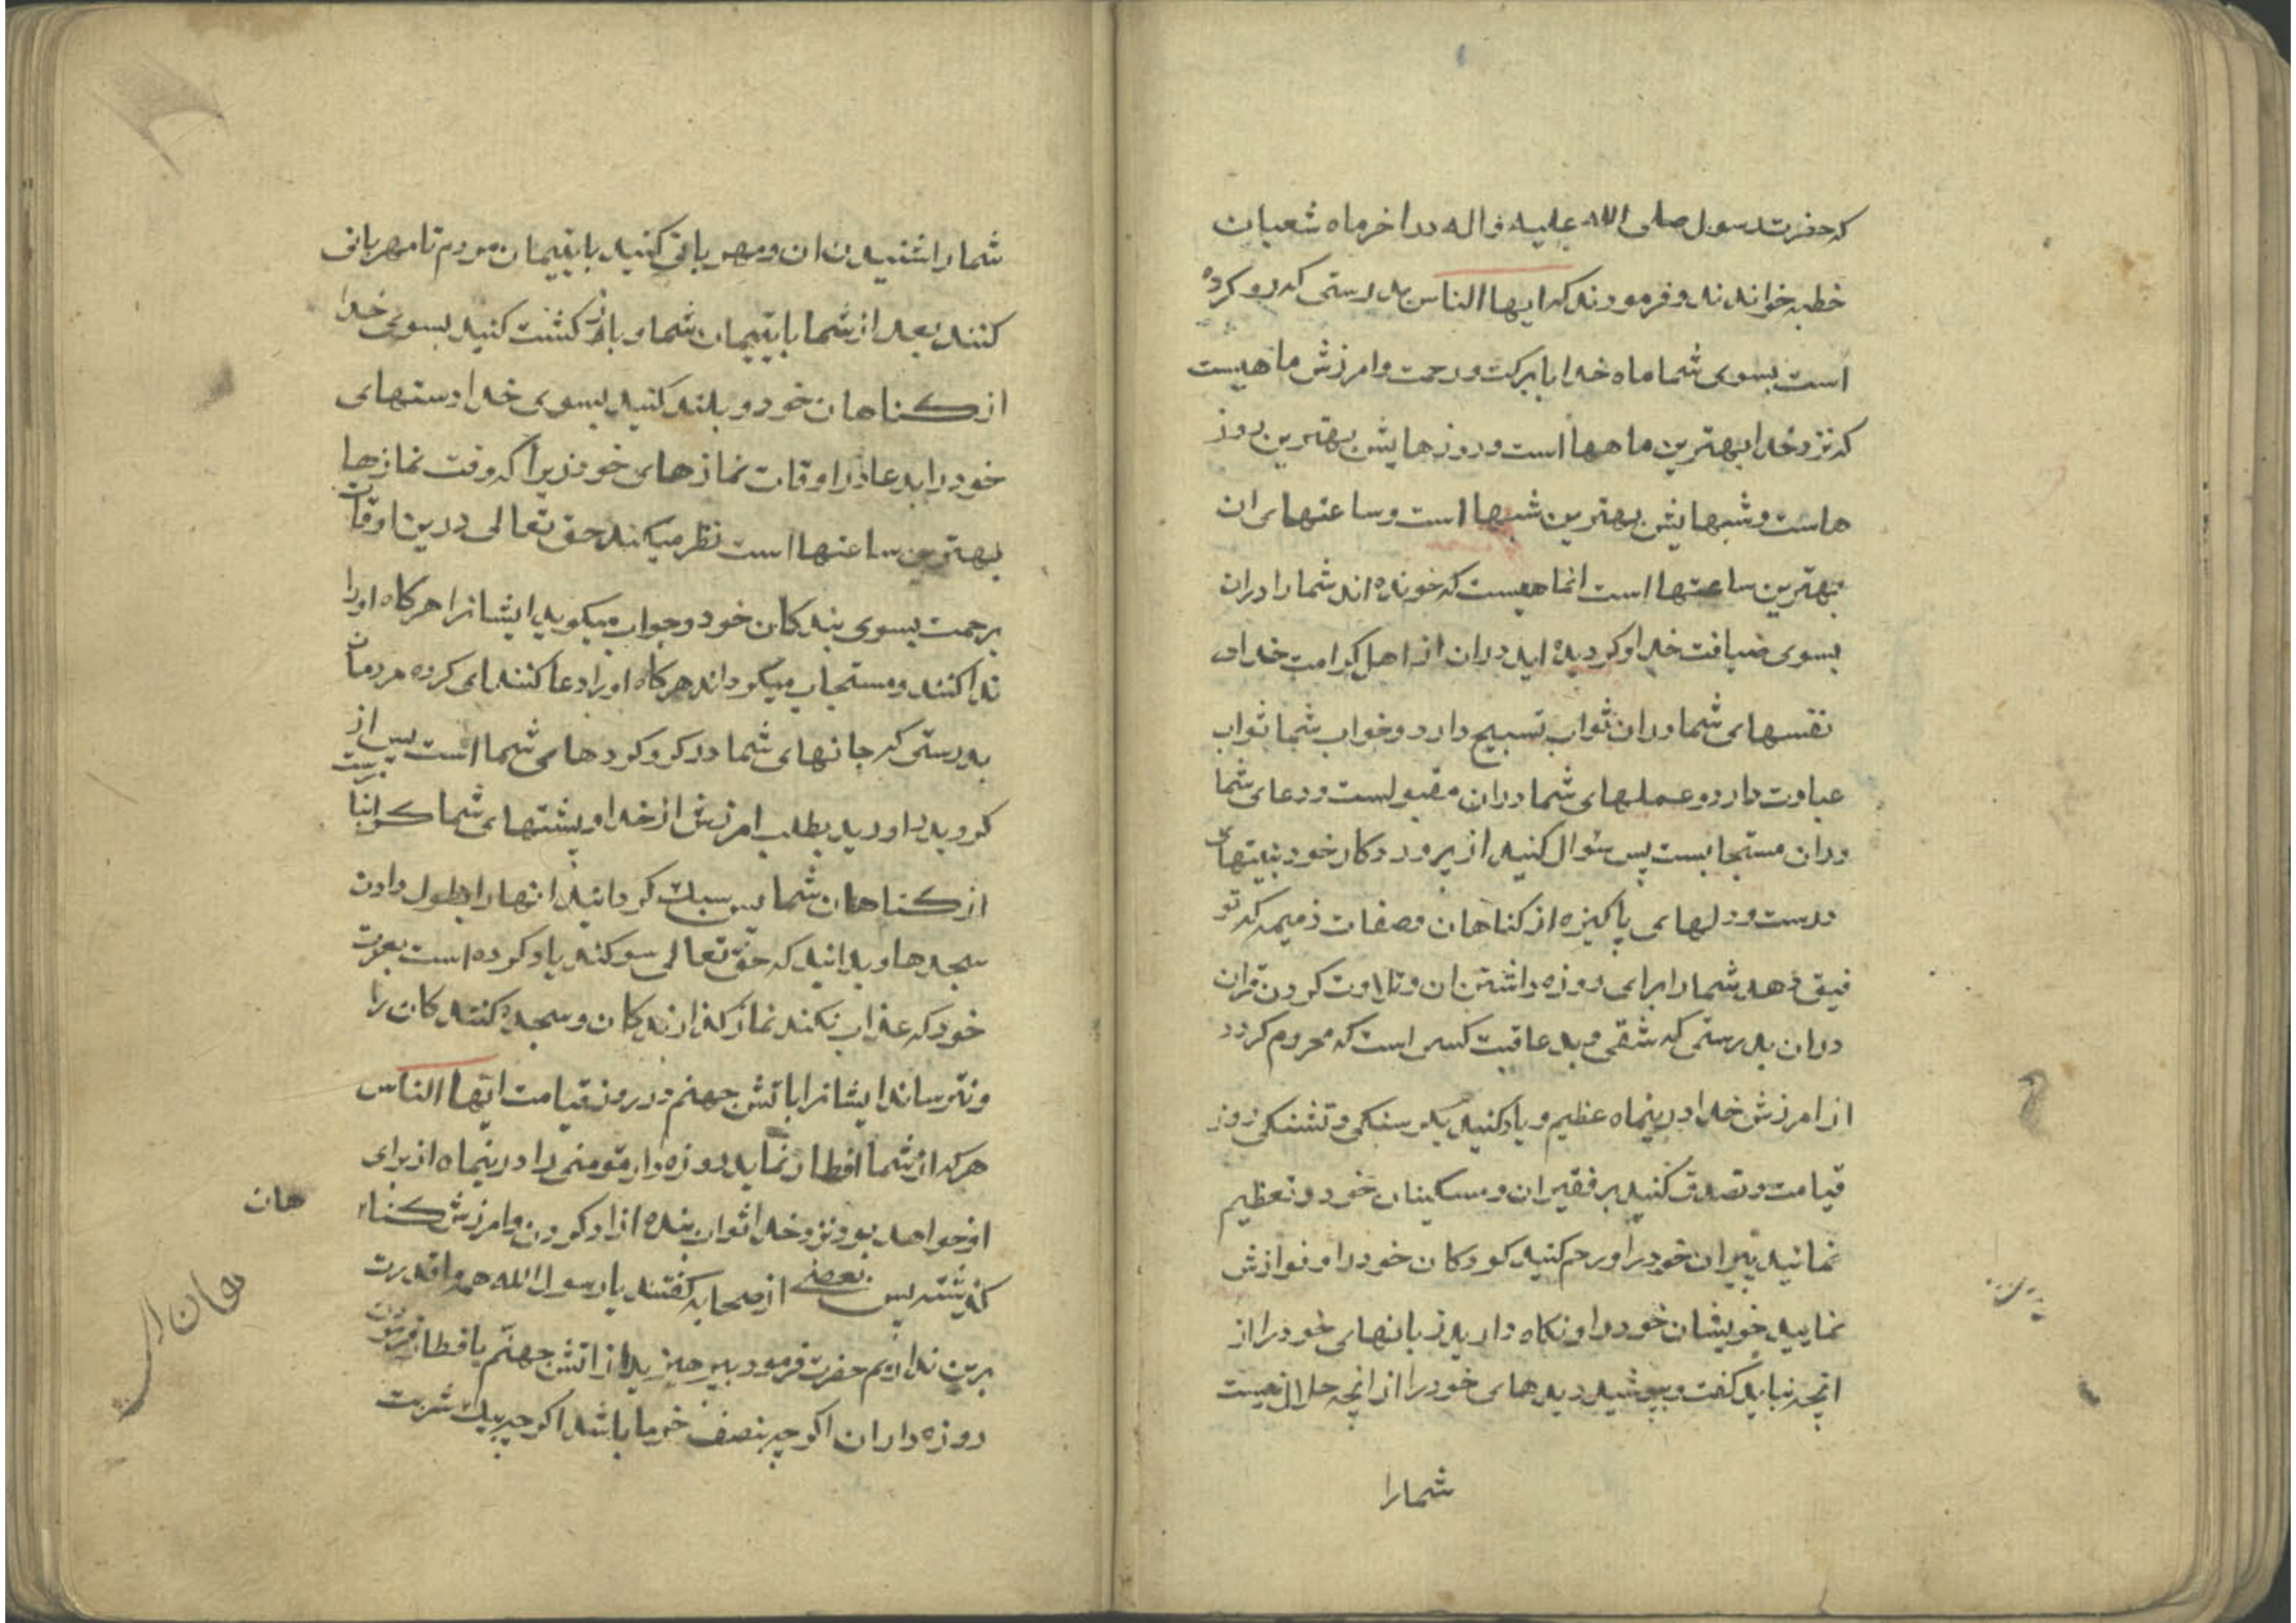 که حضرت رسول صلی الله علیه و اله در اخر ماه شعبان
خطبه خواندند و فرمودند که ایها الناس بدرستی که رو کرده
است بسوی شما ماه خدا با برکت و رحمت و امرزش ماهیست
که نزد خدا بهترین ماهها است و روزهایش بهترین روز
هاست و شبهایش بهترین شبها است و ساعتهای ان
بهترین ساعتها است انماهیست که خونده اند شما را دران
بسوی ضیافت خدا و کردیده اید دران از اهل کرامت خدا و
نفسهای شما دران ثواب تسبیح دارد و خواب شما ثواب
عبادت دارد و عملهای شما دران مقبولست و دعای شما
دران مستجابست پس سئوال کنید از پروردکار خود نیتهای
درست و دلهای پاکیزه از کناهان و صفات ذمیمه که تو
فیق دهد شما را برای روزه داشتن ان و تلاوت کردن قران
دران بدرستی که شقی و بد عاقبت کسی است که محروم کردد
از امرزش خدا درینماه عظیم و یاد کنید بکرسنکی و تشنکی روز
قیامت و تصدق کنید بر فقیران و مسکینان خود و تعظیم
نمائید پیران خود را و رحم کنید کودکان خود را و نوازش
نمایید خویشان خود را و نکاه دارید زبانهای خود را از
انچه نباید کفت و بپوشید دیدهای خود را از انچه حلال نیست
شما را
شما را شنیدن ان و مهربانی کنید با یتیمان مردم تا مهربانی
کنند بعد از شما با یتیمان شما و باز کشت کنید بسوی خدا
از کناهان خود و بلند کنید بسوی خدا دستهای
خود را بدعا در اوقات نمازهای خود زیرا که وقت نمازها
بهترین ساعتها است نظر میکند حق تعالی درین اوقات
برحمت بسوی بندکان خود و جواب میکوید ایشانرا هرکاه او را
ندا کنند و مستجاب میکرداند هرکاه او را دعا کنند ای کروه مردمان
بدرستی که جانهای شما در کرو کردهای شما است پس از
کرو بدر اورید بطلب امرزش از خدا و پشتهای شما کرانبار است
از کناهان شما پس سبک کردانید انها را بطول دادن
سجدها و بدانید که حق تعالی سوکند یاد کرده است بعزت
خود که عذاب نکند نماز کذارندکان و سجده کنندکان را
و نترساند ایشانرا باتش جهنم در روز قیامت ایها الناس
هر که از شما افطار نماید روزه دار مؤمنی را درینماه از برای
او خواهد بود نزد خدا ثواب بنده ازاد کردن و امرزش کناه
هان
کذشته پس بعضی از صحابه کفتند یا رسول الله همه ما قدرت
هان
برین نداریم حضرت فرمود بپرهیزید از اتش جهنم بافطار فرمودن
روزه داران اکرچه بنصف خرما باشد اکرچه بیک شربت